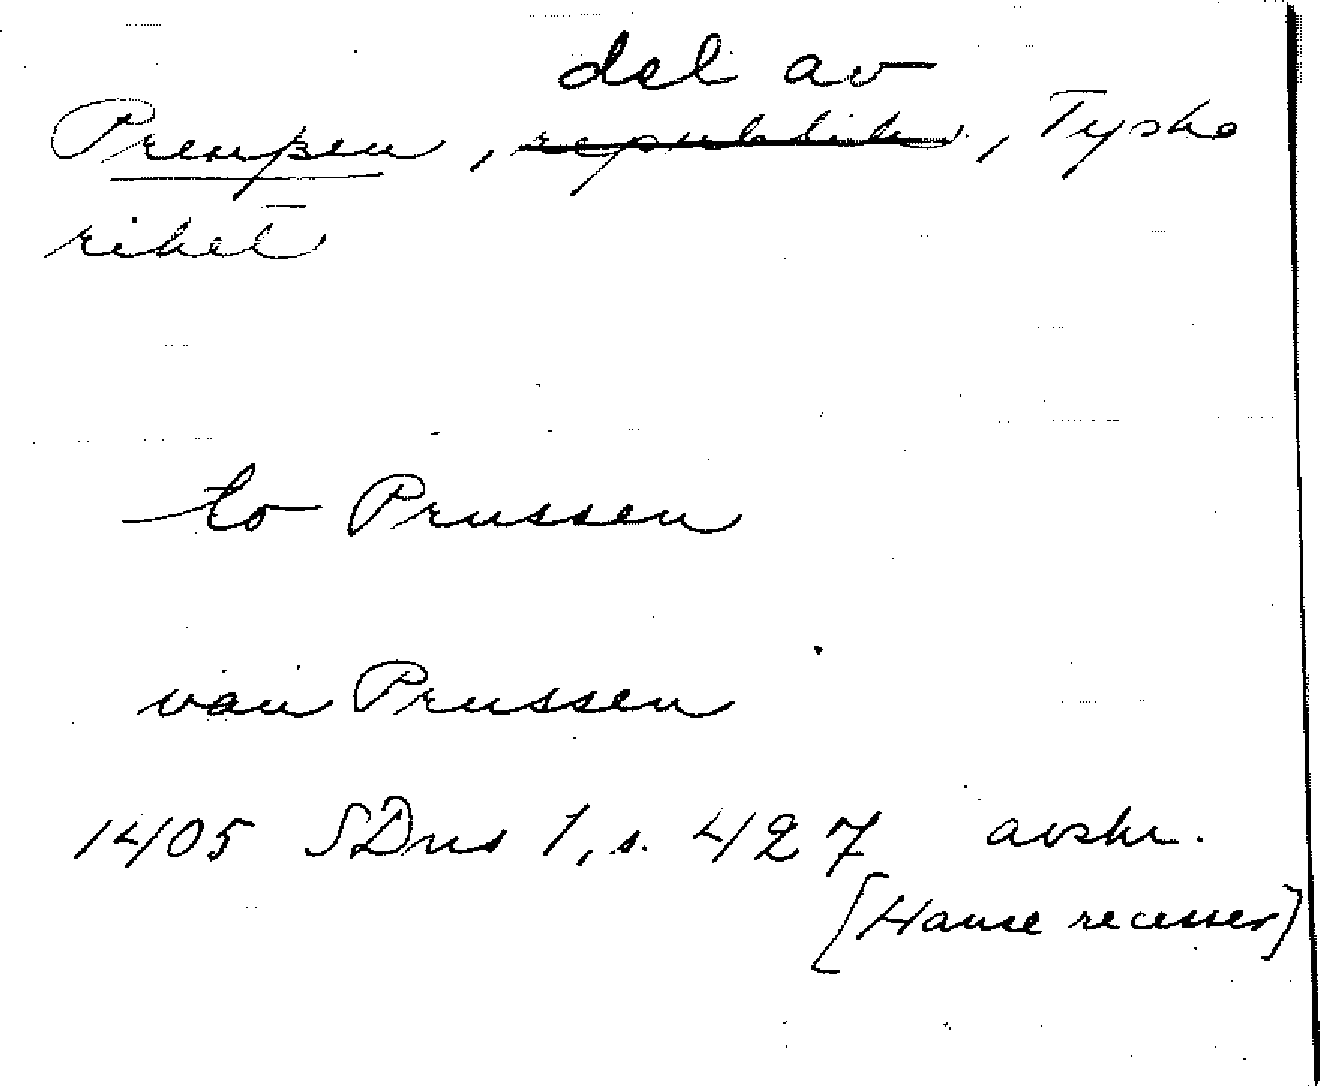 del av
Preußen, republik, Tyska
riket
to Prussen
van Prussen
1405 SDns 1, s. 427 avskr.
[Hanse recesser]